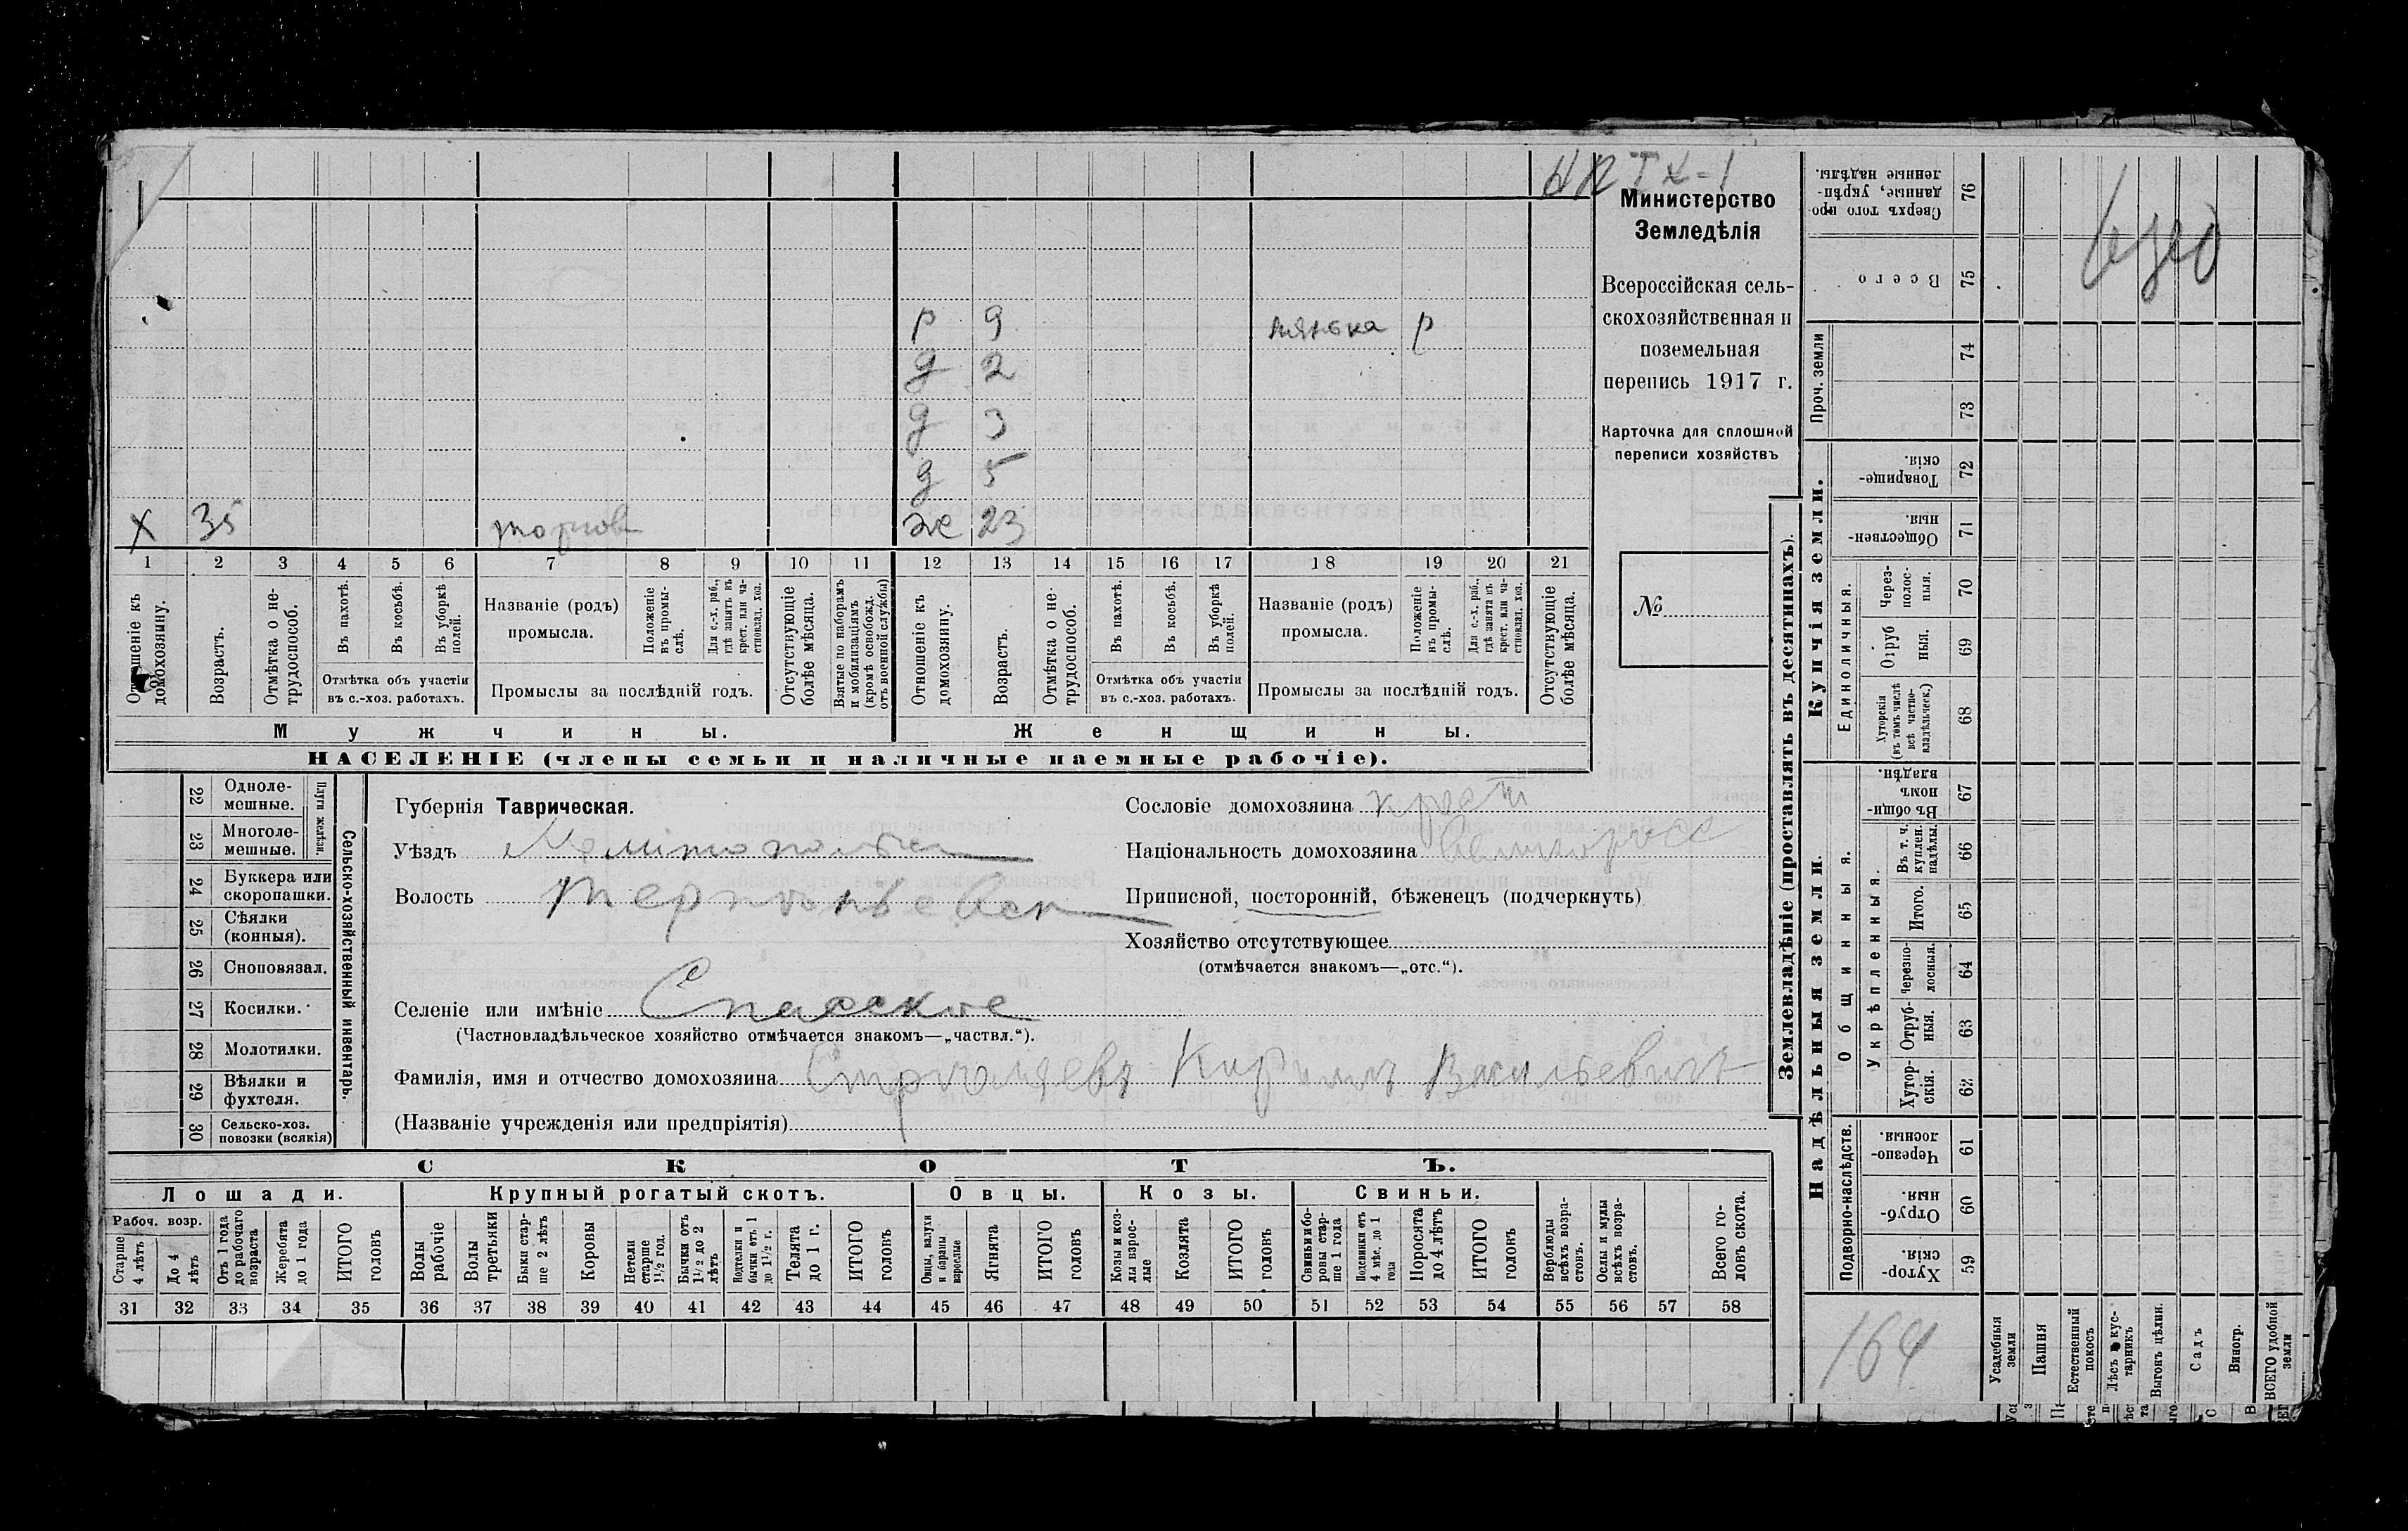 Министерство
Земледѣлія
Всероссійская сель-
скохозяйственная и
поземельная
перепись 1917 г.
Карточка для сплошной
переписи хозяйствъ
№
р 9 нянька р
д 2
д 3
д 5
х 35 торгов ж 23
1 2 3 4 5 6 7 8 9 10 11 12 13 14 15 16 17 18 19 20 21
Отношеніе къ домохозяину.
Возрастъ.
Отмѣтка о не-трудоспособ.
Въ пахотѣ.
Въ косьбѣ.
Въ уборкѣ полей.
Отмѣтка объ участіи
въ с.-хоз. работахъ.
Названіе (родъ)
промысла.
Положеніе въ промы-слѣ.
Для с.-х. раб., гдѣ занятъ въ крест. или ча-стновлад. хоз.
Промыслы за послѣдній годъ.
Отсутствующіе болѣе мѣсяца.
Взятые по наборамъ и мобилизаціямъ (кромѣ освобожд. отъ военной службы)
Отношеніе къ домохозяину.
Возрастъ.
Отмѣтка о не-трудоспособ.
Въ пахотѣ.
Въ косьбѣ.
Въ уборкѣ полей.
Отмѣтка объ участіи
въ с.-хоз. работахъ.
Названіе (родъ)
промысла.
Положеніе въ промы-слѣ.
Для с.-х. раб., гдѣ занята въ крест. или ча-стновлад. хоз.
Промыслы за послѣдній годъ.
Отсутствующіе болѣе мѣсяца.
Мужчины.
Женщины.
НАСЕЛЕНІЕ (члены семьи и наличные наемные рабочіе).
Сельско-хозяйственный инвентарь.
Плуги желѣзн.
22 Одноле-мешные.
23 Многоле-мешные.
24 Буккера или скоропашки.
25 Сѣялки (конныя).
26 Сноповязал.
27 Косилки.
28 Молотилки.
29 Вѣялки и фухтеля.
30 Сельско-хоз. повозки (всякія)
Губернія Таврическая.
Уѣздъ Мелитопольск
Волость Терпеньевск
Селеніе или имѣніе Спасское
(Частновладѣльческое хозяйство отмѣчается знакомъ—„частвл.“).
Фамилія, имя и отчество домохозяина Кириллъ Васильевичъ
(Названіе учрежденія или предпріятія)
Сословіе домохозяина крест
Національность домохозяина великоросс
Приписной, посторонній, бѣженецъ (подчеркнуть)
Хозяйство отсутствующее
(отмѣчается знакомъ—„отс.“).
СКОТЪ.
Лошади.
Рабоч. возр.
Старше 4 лѣтъ
До 4 лѣтъ
Отъ 1 года до рабочаго возраста
Жеребята до 1 года
ИТОГО головъ
Крупный рогатый скотъ.
Волы рабочіе
Волы третьяки
Быки стар-ше 2 лѣтъ
Коровы
Нетели старше 1½ год.
Бычки отъ 1½ до 2 лѣтъ
Подтелки и бычки отъ 1 до 1½ г.
Телята до 1 г.
ИТОГО головъ
Овцы.
Овцы, валухи и бараны взрослые
Ягнята
ИТОГО головъ
Козы.
Козы и коз-лы взрос-лые
Козлята
ИТОГО головъ
Свиньи.
Свиньи и бо-ровы стар-ше 1 года
Подсвинки отъ 4 мѣс. до 1 года
Поросята до 4 лѣтъ
ИТОГО головъ
Верблюды всѣхъ возра-стовъ.
Ослы и мулы всѣхъ возра-стовъ.
Всего го-ловъ скота.
31 32 33 34 35 36 37 38 39 40 41 42 43 44 45 46 47 48 49 50 51 52 53 54 55 56 57 58
Землевладѣніе (проставлять въ десятинахъ).
Купчія земли.
Надѣльныя земли.
Проч. земли
Единоличныя.
Общинныя.
Укрѣпленныя.
Подворно-наслѣдств.
76 Сверхъ того про-данные, укрѣп-ленные надѣлы.
75 Всего
74
73
72 Товарище-скія.
71 Обществен-ныя.
70 Через-полос-ныя.
69 Отруб ныя.
68 Хуторскія (въ томъ числѣ всѣ частно-владѣльческ.)
67 Въ общи-номъ владѣн.
66 Въ т. ч. куплен. надѣлы.
65 Итого.
64 Черезпо-лосныя.
63 Отруб-ныя.
62 Хутор-скія.
61 Черезпо-лосныя.
60 Отруб-ныя.
59 Хутор-скія.
164
Усадебныя земли
Пашня
Естественный покосъ
Лѣсъ и кус-тарникъ
Выгонъ цѣлин.
Садъ
Виногр.
ВСЕГО удобной земли